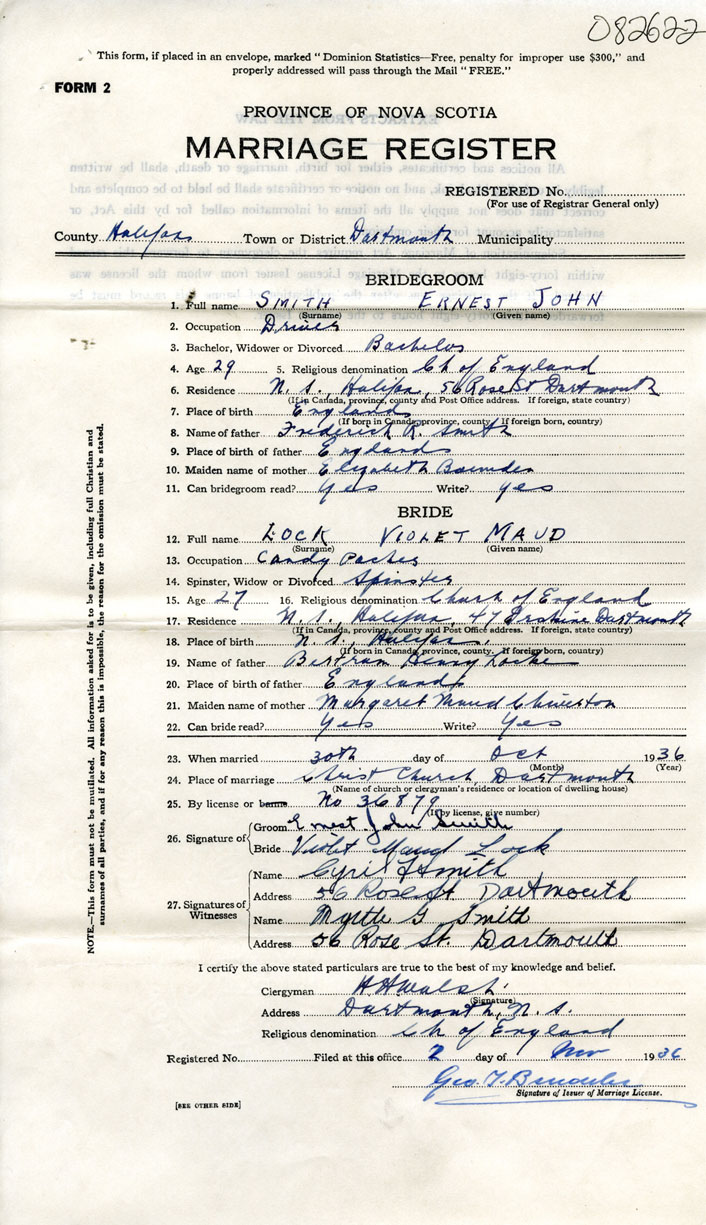 082622
This form, if placed in an envelope, marked "Dominion Statistics—Free, penalty for improper use $300," and
properly addressed will pass through the Mail "FREE."
FORM 2
PROVINCE OF NOVA SCOTIA
MARRIAGE REGISTER
REGISTERED No.
(For use of Registrar General only)
County Halifax Town or District Dartmouth Municipality
BRIDEGROOM
1. Full name SMITH ERNEST JOHN
(Surname) (Given name)
2. Occupation Driver
3. Bachelor, Widower or Divorced Bachelor
4. Age 29 5. Religious denomination Ch of England
6. Residence N. S., Halifax, 56 Rose St Dartmouth
(If in Canada, province, county and Post Office address. If foreign, state country)
7. Place of birth England
(If born in Canada, province, county. If foreign born, country)
8. Name of father Frederick R. Smith
9. Place of birth of father England
10. Maiden name of mother Elizabeth
11. Can bridegroom read? Yes Write? Yes
BRIDE
12. Full name LOCK VIOLET MAUD
(Surname) (Given name)
13. Occupation Candy Packer
14. Spinster, Widow or Divorced Spinster
15. Age 27 16. Religious denomination Church of England
17. Residence N. S., Halifax, 47 Erskine Dartmouth
(If in Canada, province, county and Post Office address. If foreign, state country)
18. Place of birth N. S., Halifax
(If born in Canada, province, county. If foreign born, country)
19. Name of father Bertram Henry Locke
20. Place of birth of father England
21. Maiden name of mother Margaret Maud
22. Can bride read? Yes Write? Yes
23. When married 30th day of Oct 1936
(Month) (Year)
24. Place of marriage Christ Church, Dartmouth
(Name of church or clergyman's residence or location of dwelling house)
25. By license or banns No 36879
(If by license, give number)
26. Signature of Groom Ernest John Smith
Bride Violet Maud Lock
27. Signatures of Witnesses Name Cyril F Smith
Address 56 Rose St Dartmouth
Name Myrtle G Smith
Address 56 Rose St. Dartmouth
I certify the above stated particulars are true to the best of my knowledge and belief.
Clergyman H H Walsh
(Signature)
Address Dartmouth, N. S.
Religious denomination Ch of England
Registered No. Filed at this office 2 day of Nov 1936
Geo. T.
Signature of Issuer of Marriage License.
[SEE OTHER SIDE]
NOTE.—This form must not be mutilated. All information asked for is to be given, including full Christian and
surnames of all parties, and if for any reason this is impossible, the reason for the omission must be stated.